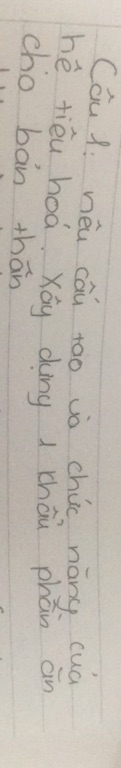 Câu 1: nêu cấu tạo và chức năng của
hệ tiêu hoá. Xây dựng 1 khẩu phần ăn
cho bản thân